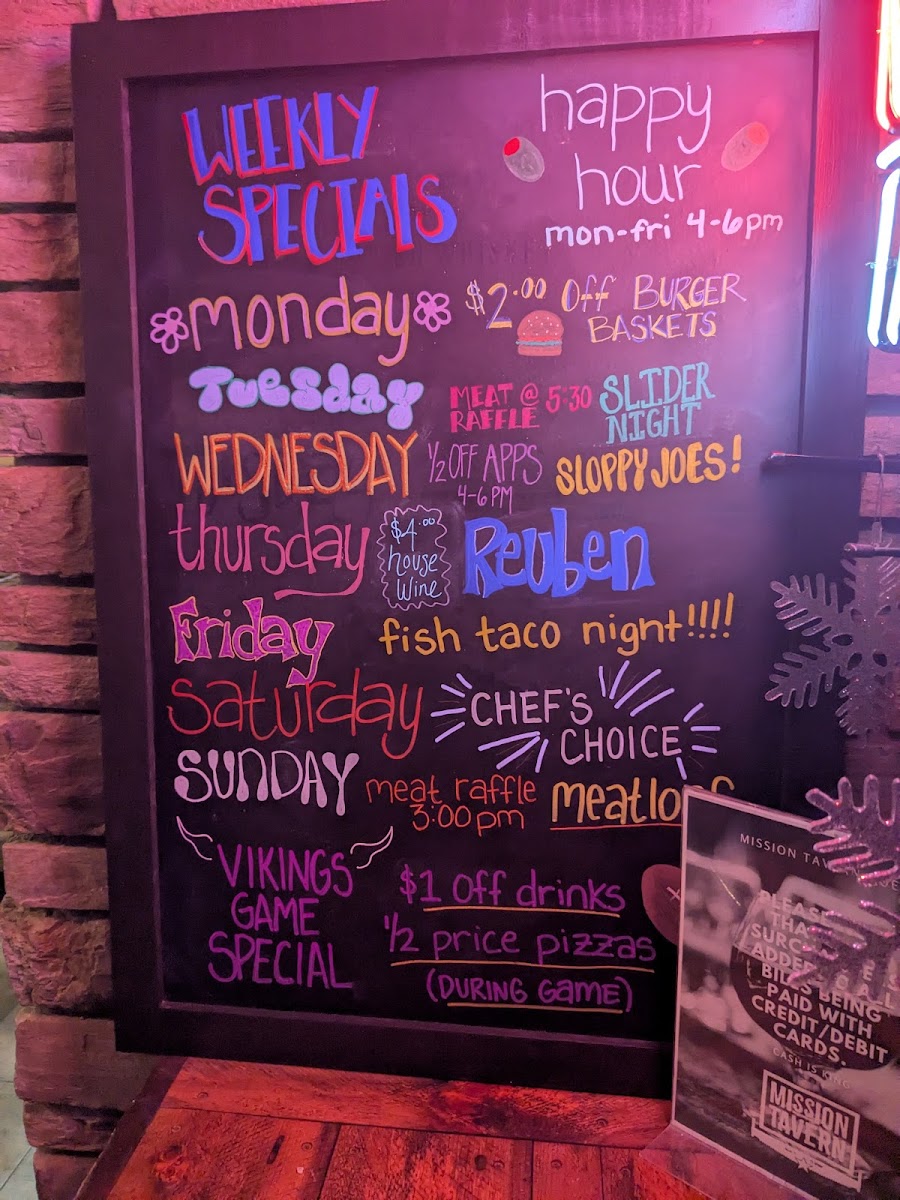 WEEKLY
SPECIALS
happy
hour
mon-fri 4-6pm
monday
$2.00 Off BURGER
BASKETS
Tuesday
MEAT @ 5:30
RAFFLE
SLIDER
NIGHT
WEDNESDAY
1/2 OFF APPS
4-6 PM
SLOPPY JOES!
thursday
$4.00
house
wine
Reuben
Friday
fish taco night!!!!
Saturday
CHEF'S
CHOICE
SUNDAY
meat raffle
3:00pm
meatloaf
VIKINGS
GAME
SPECIAL
$1 Off drinks
1/2 price pizzas
(DURING Game)
MISSION
PLEASE
THA
SURC
ADDE
BILLS BEING
PAID WITH
CREDIT/DEBIT
CARDS.
CASH IS KING
MISSION
TAVERN